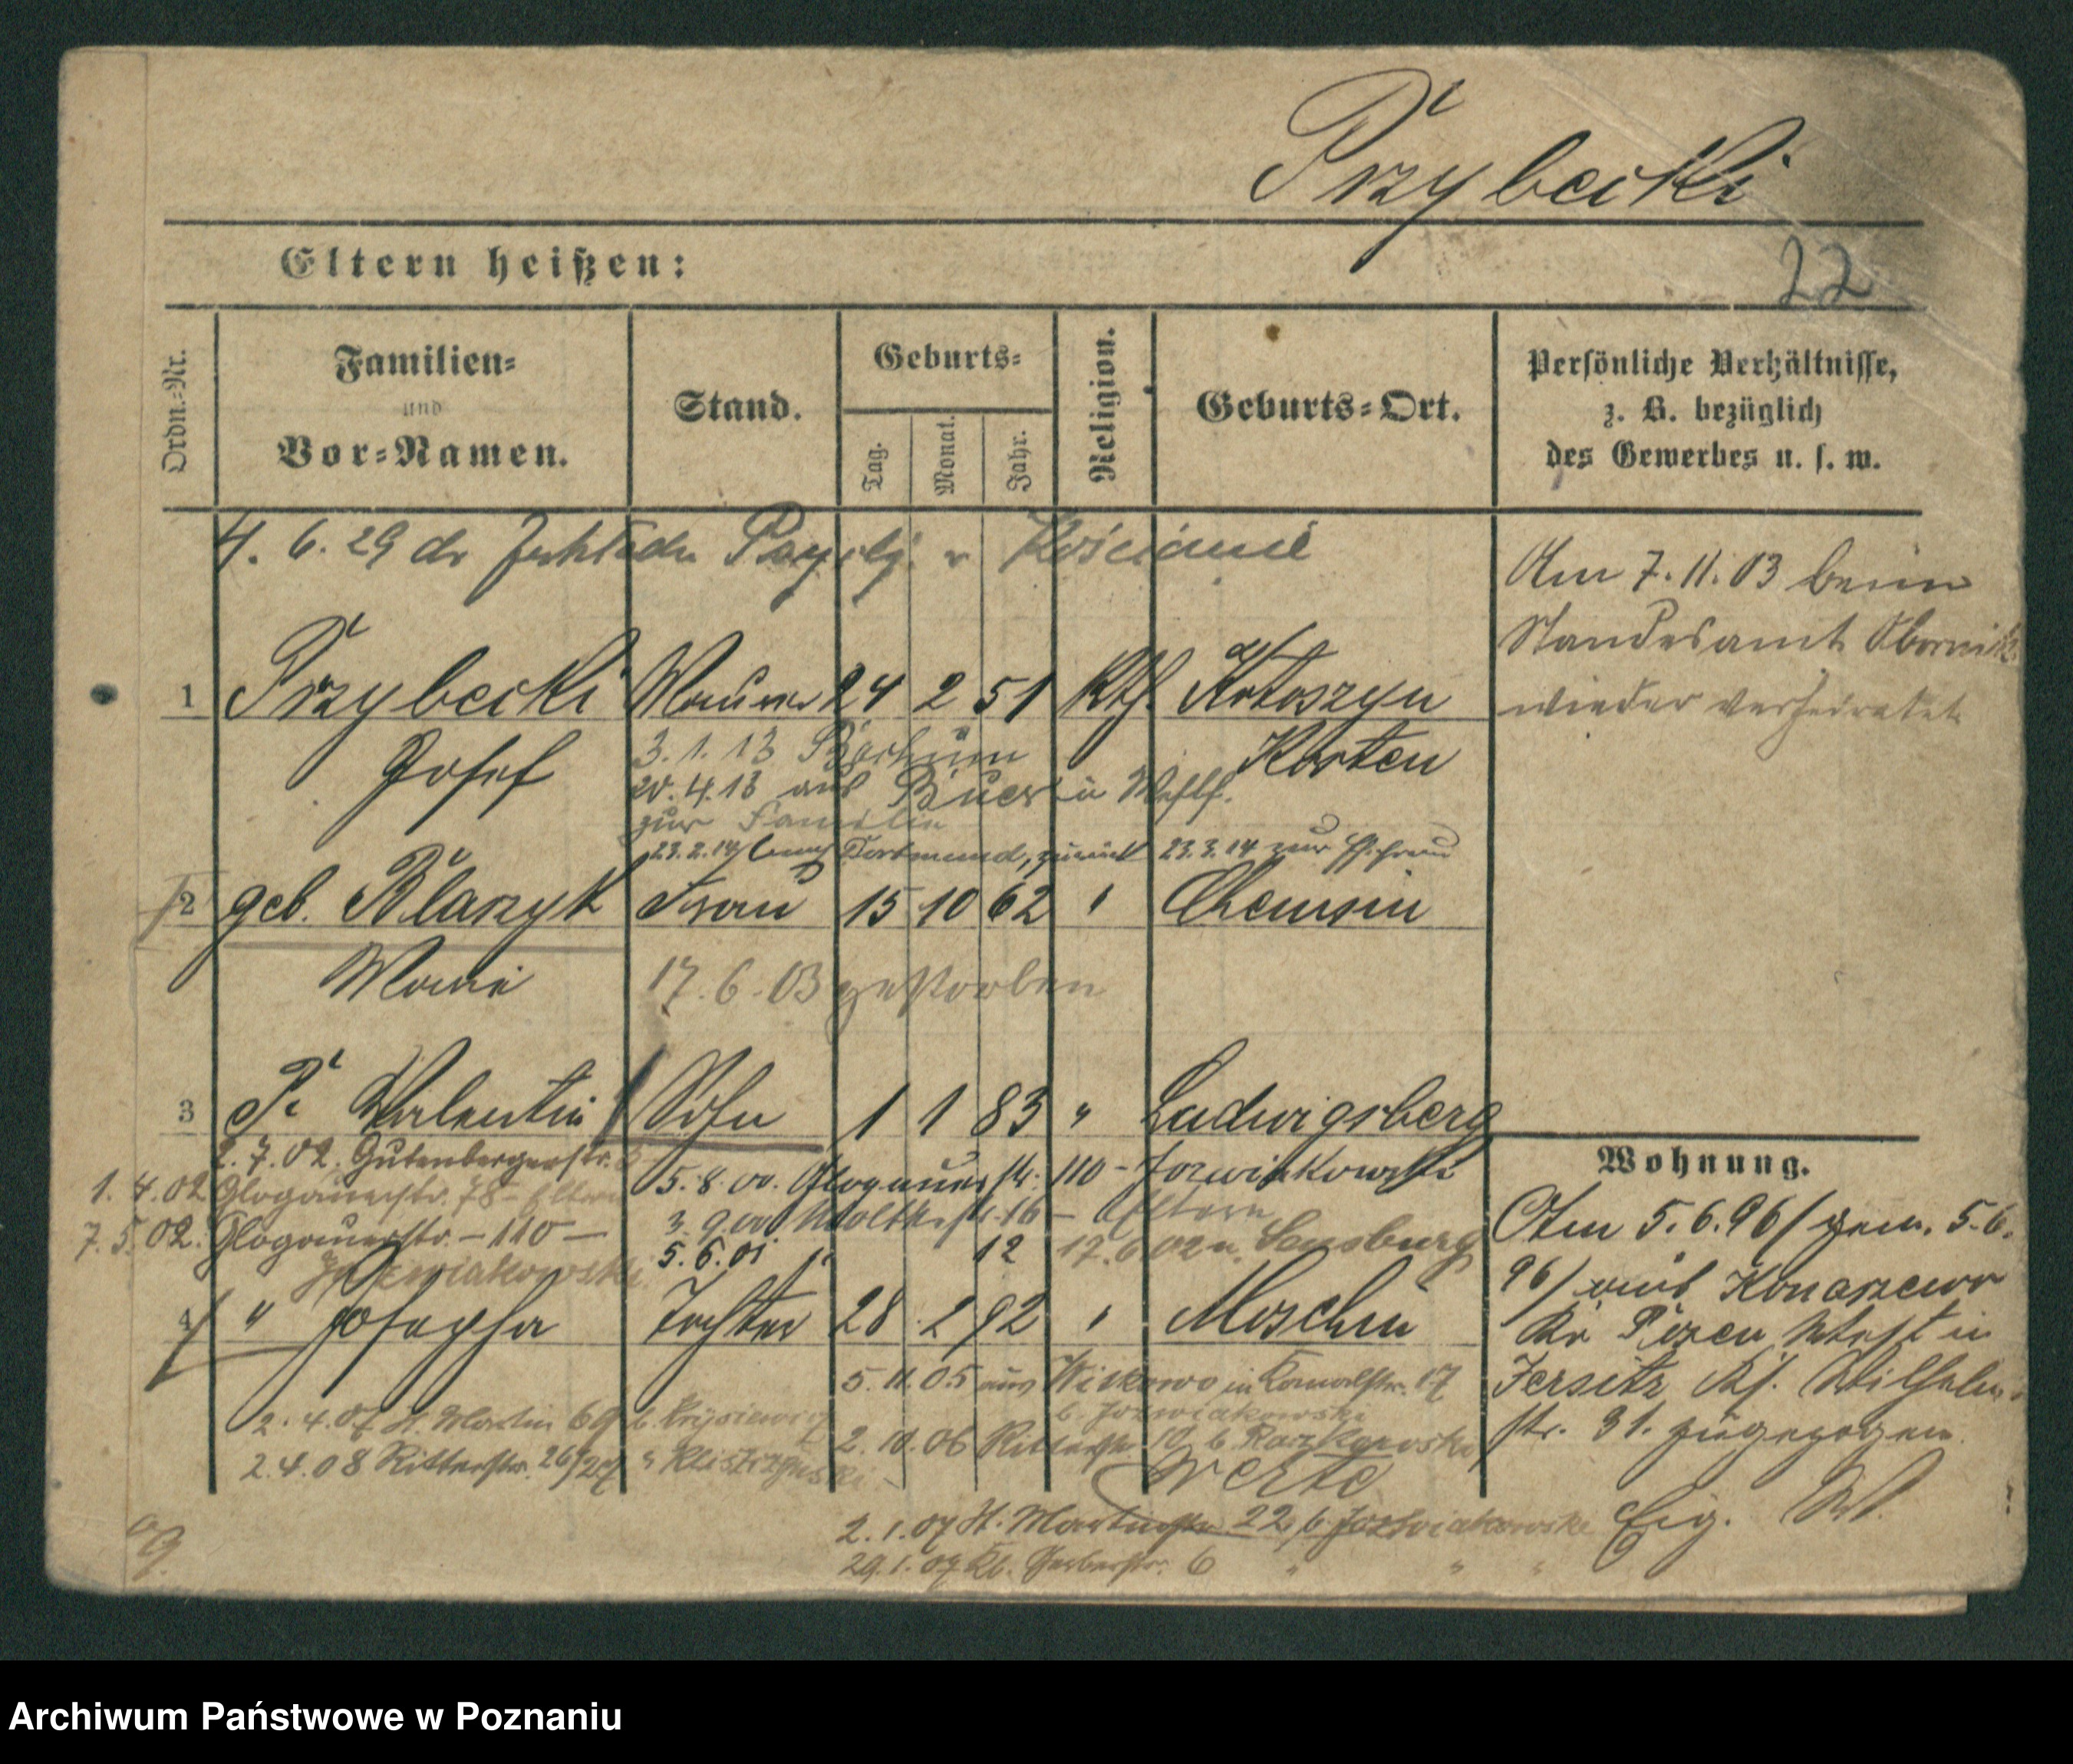 Przybecki
Eltern heißen:
22
Ordn.-Nr.
Familien-
und
Vor-Namen.
Stand.
Geburts-
Tag.
Monat.
Jahr.
Religion.
Geburts-Ort.
Persönliche Verhältnisse,
z. B. bezüglich
des Gewerbes u. s. w.
4. 6. 29 do Kościanie
Am 7. 11. 03 beim
Standesamt Obornik
wieder verheiratet
1 Przybecki Maurer 24 2 51 Kth. Krotoszyn
Josef
3. 1. 13 Bochum
Kosten
20. 4. 13 aus Buer in Westf.
zur Familie
23. 2. 14 nach Dortmund, zurück 23. 3. 14 zur Ehefrau
2 geb. Blaszyk Frau 15 10 62 " Chemsin
Marie
17. 6. 03 gestorben
3 P. Valentin Sohn 1 1 83 " Ludwigsberg
2. 7. 02. Gutenbergerstr.
5. 8. 00. Glogauerstr. 110 - Jozwiakowski
1. 4. 02 Glogauerstr. 78 - Eltern
3. 9. 00 Moltkestr. 16 - Eltern
7. 5. 02. Glogauerstr. - 110 -
Jozwiakowski
5. 6. 01 " 12 17. 6 02 n. Sensburg
4 " Josepha Tochter 28 2 92 " Moschin
5. 11. 05 aus in Kanalstr. 17
b. Jozwiakowski
2. 4. 07 St. Martin 69 b.
2. 10. 06 Ritterstr. 10 b.
2. 4. 08 Ritterstr. 26/27 "
Werte
2. 1. 07 St. Martinstr. 22, b. Jozwiakowski
29. 1. 07 Kl. Gerberstr. 6 " " "
Wohnung.
Am 5. 6. 96 / gem. 5. 6.
96 / aus Konarzewo
Kr Posen West in
Jersitz Bz. Wilhelm-
str. 31. zugezogen.
Eig. W.
Archiwum Państwowe w Poznaniu